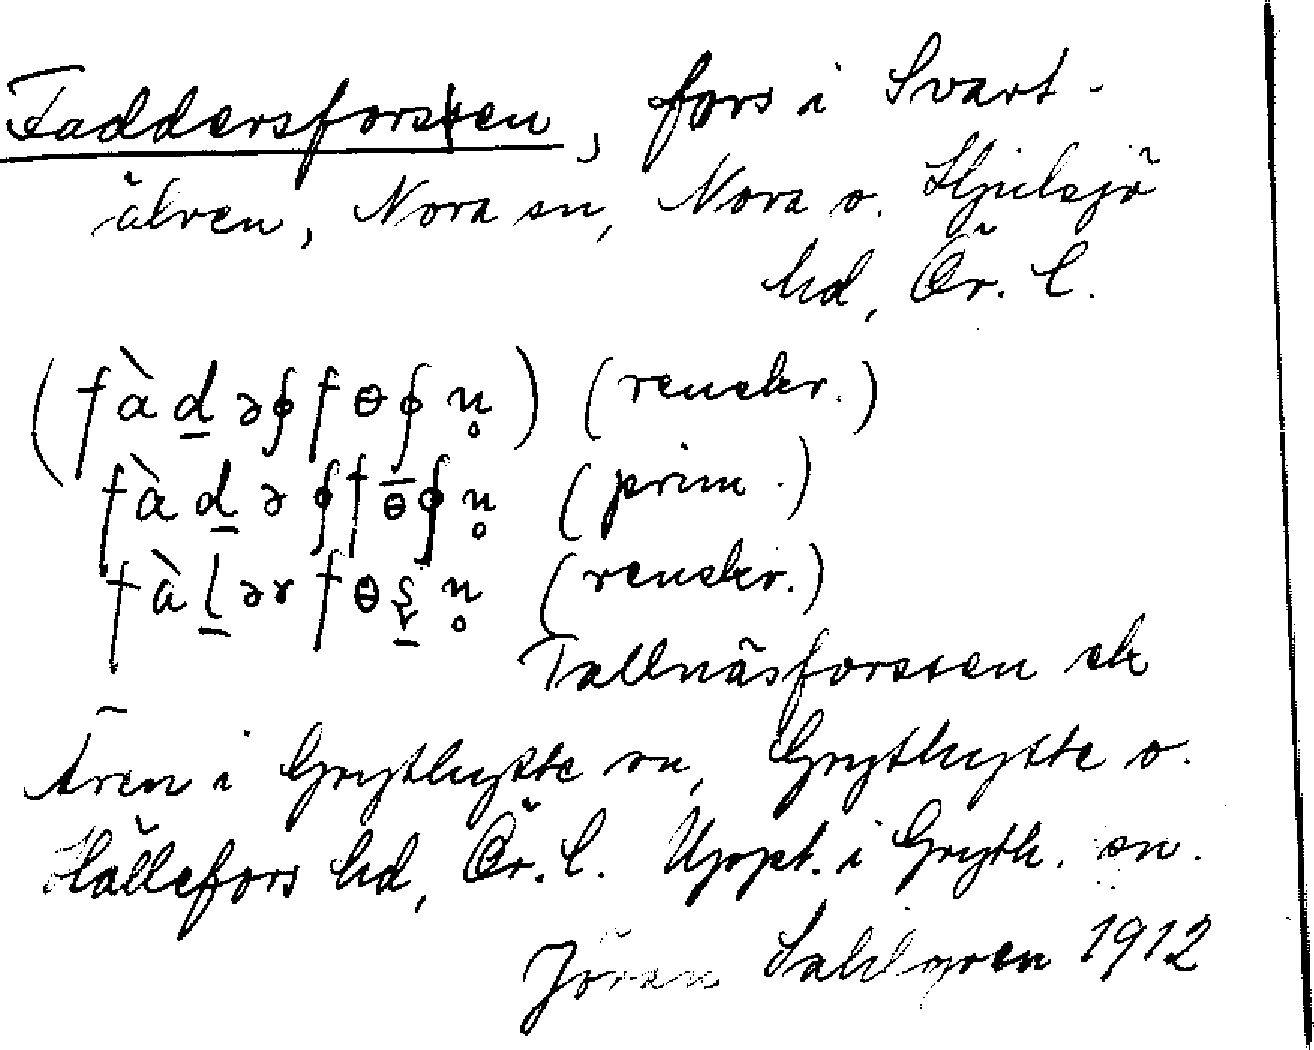 Faddersforsen, fors i Svart-
älven, Nora sn, Nora o. Hjulsjö
hd, Ör. l.
(renskr.)
(prim.)
(renskr.)
Tallnäsforssen el.
i Grythytte sn, Grythytte o.
Hällefors hd, Ör. l. Uppt. i Gryth. sn.
Jöran Sahlgren 1912